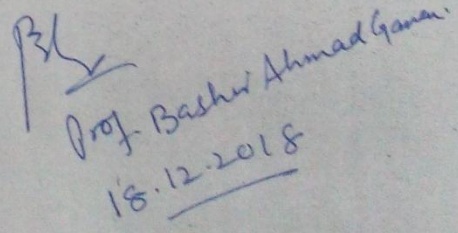 Prof. Bashir Ahmad Ganai.
18.12.2018